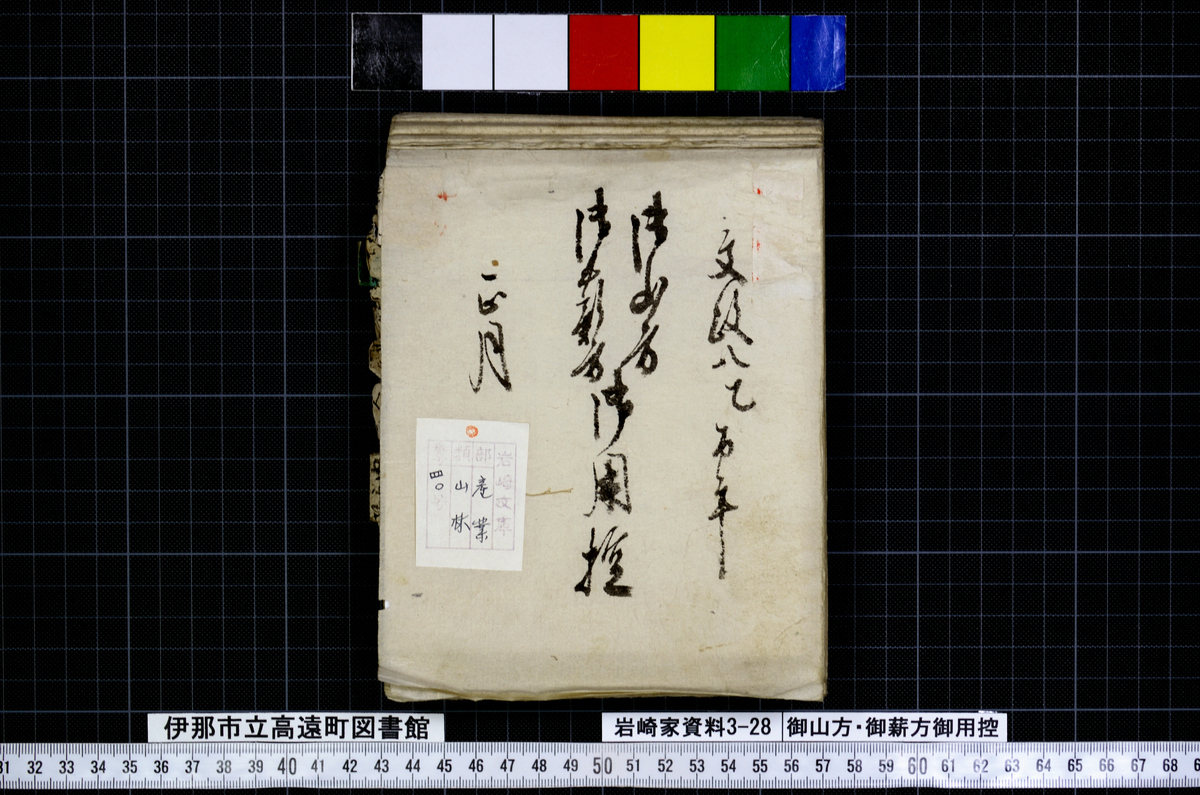 文政八乙酉年
御山方
御薪方
御用控
正月
岩崎文庫
部 産業
類 山林
第四〇号
伊那市立高遠町図書館
岩崎家資料3-28
御山方・御薪方御用控
31 32 33 34 35 36 37 38 39 40 41 42 43 44 45 46 47 48 49 50 51 52 53 54 55 56 57 58 59 60 61 62 63 64 65 66 67 68 6